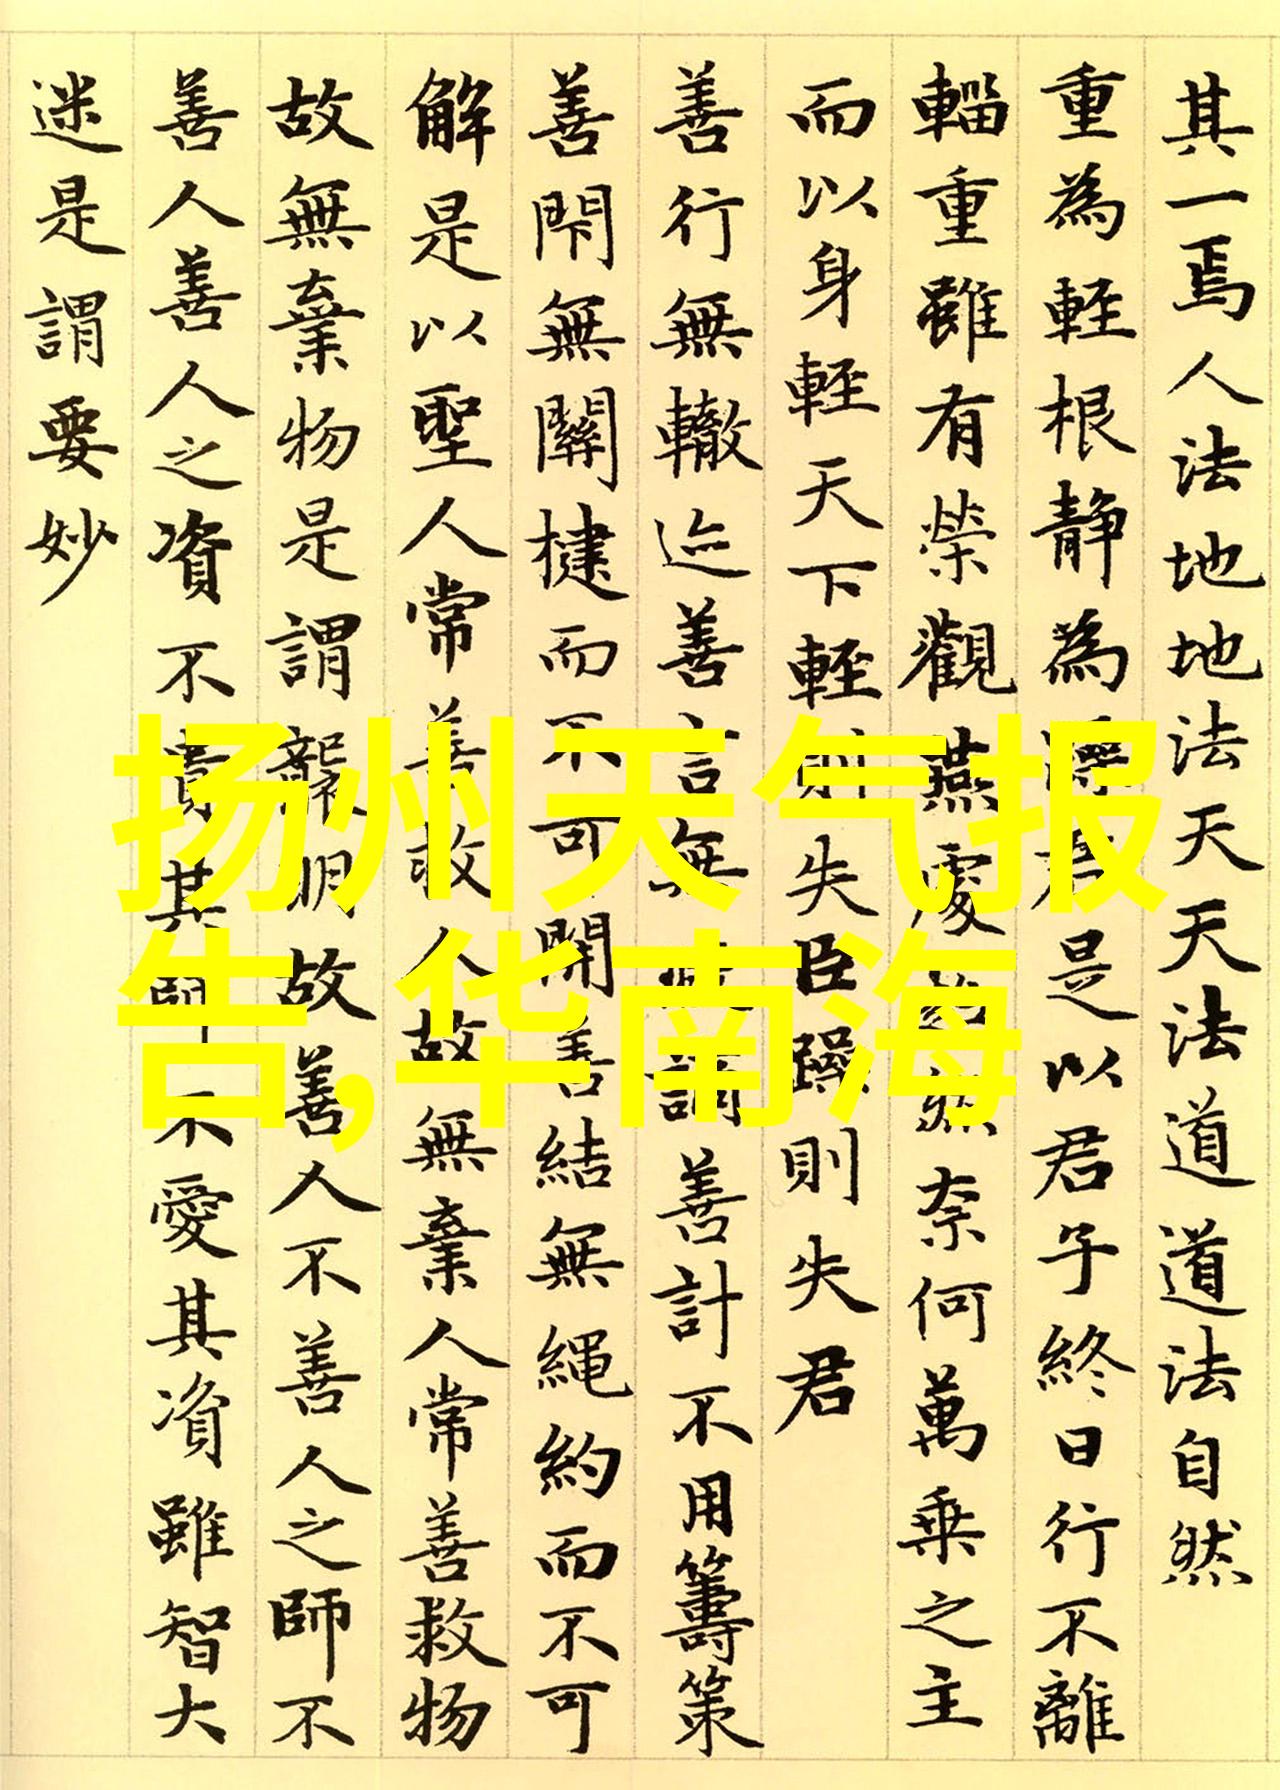 其一焉人法地地法天天法道道法自然
重為輕根静為躁君是以君子終日行不離
輜重雖有榮觀燕處超然奈何萬乘之主
而以身輕天下輕則失臣躁則失君
善行無轍迹善言無瑕謫善計不用籌策
善閇無關楗而不可開善結無繩約而不可
解是以聖人常善救人故無棄人常善救物
故無棄物是謂襲明故善人不善人之師不
善人善人之資不貴其師不愛其資雖智大
迷是謂要妙
扬州天气报
告,华南海